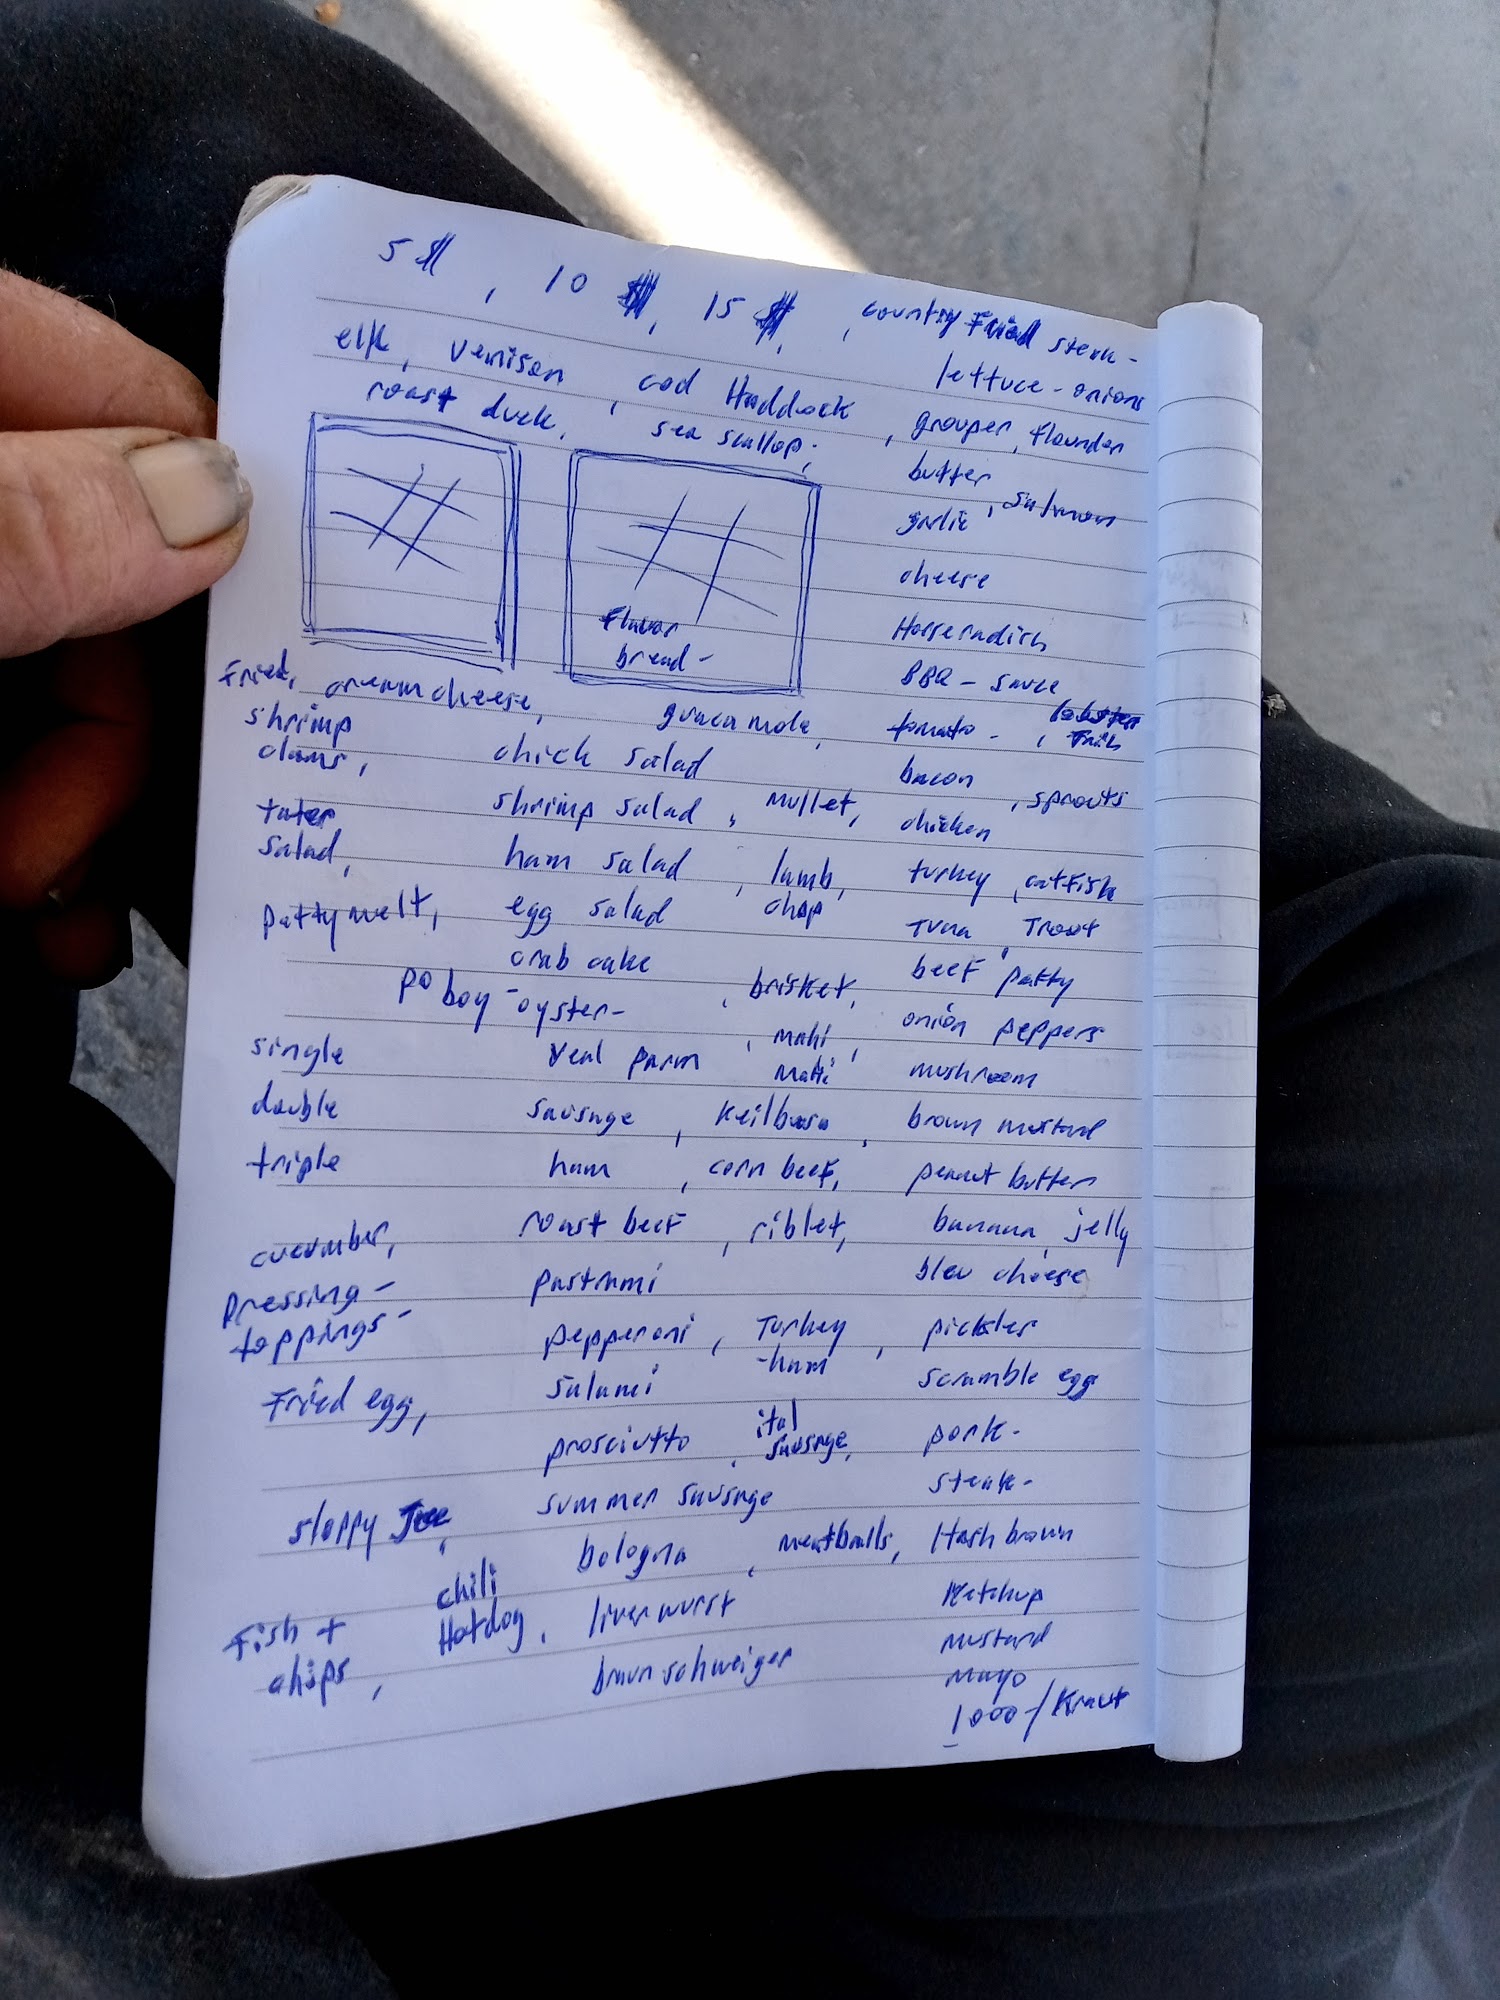 5$, 10$, 15$, country Fried steak -
elk, venison, cod Haddock, lettuce - onions
roast duck, sea scallop, grouper, flounder
butter
garlic, salmon
cheese
Horseradish
Flavor
bread -
BBQ - sauce
Fried, cream cheese, guacamole, tomato -, lobster
shrimp
clams, chick salad bacon, sprouts
tater shrimp salad, mullet, chicken
salad, ham salad, lamb, turkey, catfish
chop
patty melt, egg salad tuna, Trout
crab cake beef patty
po boy - oyster -, brisket, onion peppers
single veal parm, mahi, mushroom
mahi
double sausage, Keilbasa, brown mustard
triple ham, corn beef, peanut butter
cucumber, roast beef, riblet, banana, jelly
Dressing - pastrami bleu cheese
toppings - pepperoni, Turkey, pickles
-ham
Fried egg, salami scramble egg
prosciutto, ital pork -
sausage,
summer sausage steak -
sloppy Joe, bologna, meatballs, Hash brown
chili
Fish + Hotdog, liverwurst Ketchup
chips, braunschweiger mustard
mayo
1000 / Kraut